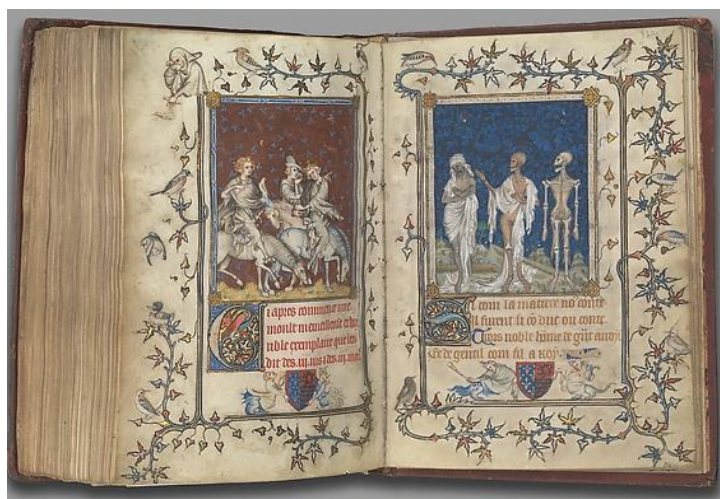 Ci apres commence une
moult merueilleuse et hor
rible exemplaire que len
dit des .iii.
Si com la matiere no conte
Il furent si cō duc ou conte
Trois noble hōme de grāt arroy
Et de gentil com fil a Roy